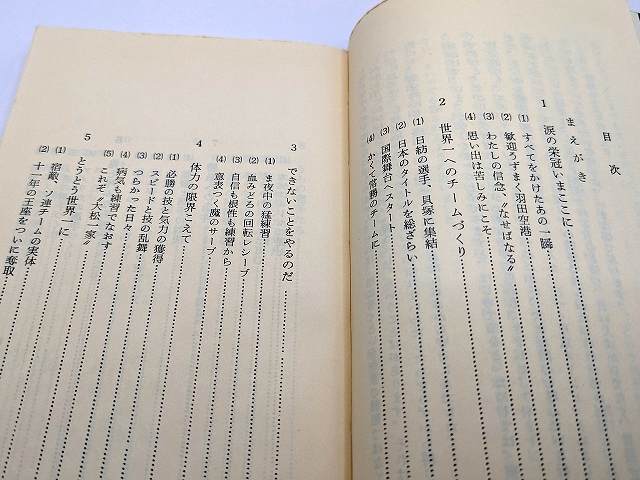 目次
まえがき
1 涙の栄冠いまここに
(1) すべてをかけたあの一瞬
(2) 歓迎うずまく羽田空港
(3) わたしの信念、〝なせばなる〟
(4) 思い出は苦しみにこそ
2 世界一へのチームづくり
(1) 日紡の選手、貝塚に集結
(2) 日本のタイトルを総ざらい
(3) 国際舞台へスタート
(4) かくて常勝のチームに
3 できないことをやるのだ
(1) ま夜中の猛練習
(2) 血みどろの回転レシーブ
(3) 自信も根性も練習から
(4) 意表つく魔のサーブ
4 体力の限界こえて
(1) 必勝の技と気力の獲得
(2) スピードと技の乱舞
(3) つらかった日々
(4) 病気も練習でなおす
(5) これぞ〝大松一家〟
5 とうとう世界一に
(1) 宿敵、ソ連チームの実体
(2) 十一年の王座をついに奪取